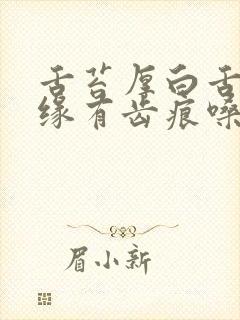 舌苔厚白舌
缘有齿痕嗓
眉小新